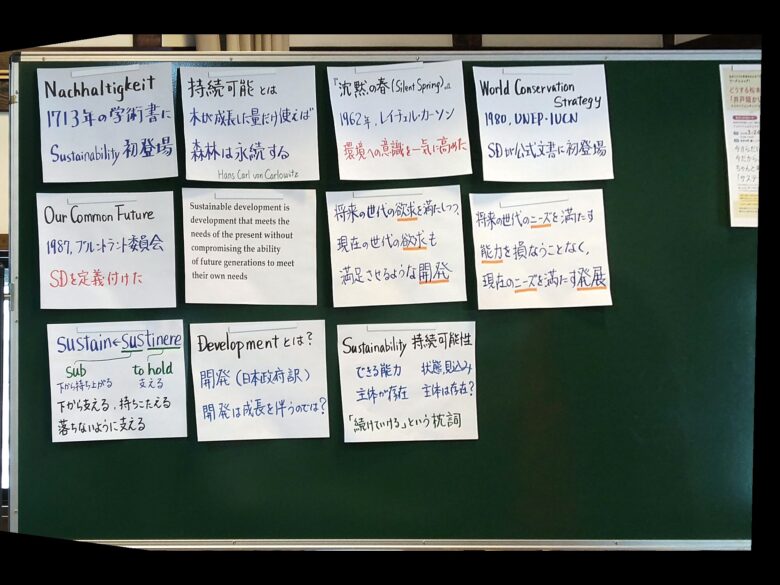 Nachhaltigkeit
1713年の学術書に
Sustainability 初登場
持続可能とは
木が成長した量だけ使えば
森林は永続する
Hans Carl von Carlowitz
『沈黙の春(Silent Spring)』
1962年、レイチェル・カーソン
環境への意識を一気に高めた
World Conservation
Strategy
1980, UNEP・IUCN
SDが公式文書に初登場
Our Common Future
1987, ブルントラント委員会
SDを定義付けた
Sustainable development is
development that meets the
needs of the present without
compromising the ability
of future generations to meet
their own needs
将来の世代の欲求を満たしつつ、
現在の世代の欲求も
満足させるような開発
将来の世代のニーズを満たす
能力を損なうことなく、
現在のニーズを満たす発展
Sustain←Sustinere
sub to hold
下から持ち上がる 支える
下から支える、持ちこたえる
落ちないように支える
Developmentとは?
開発(日本政府訳)
開発は成長を伴うのでは?
Sustainability 持続可能性
できる能力 状態,見込み
主体が存在 主体は存在?
「続けていける」という枕詞
どうする松本